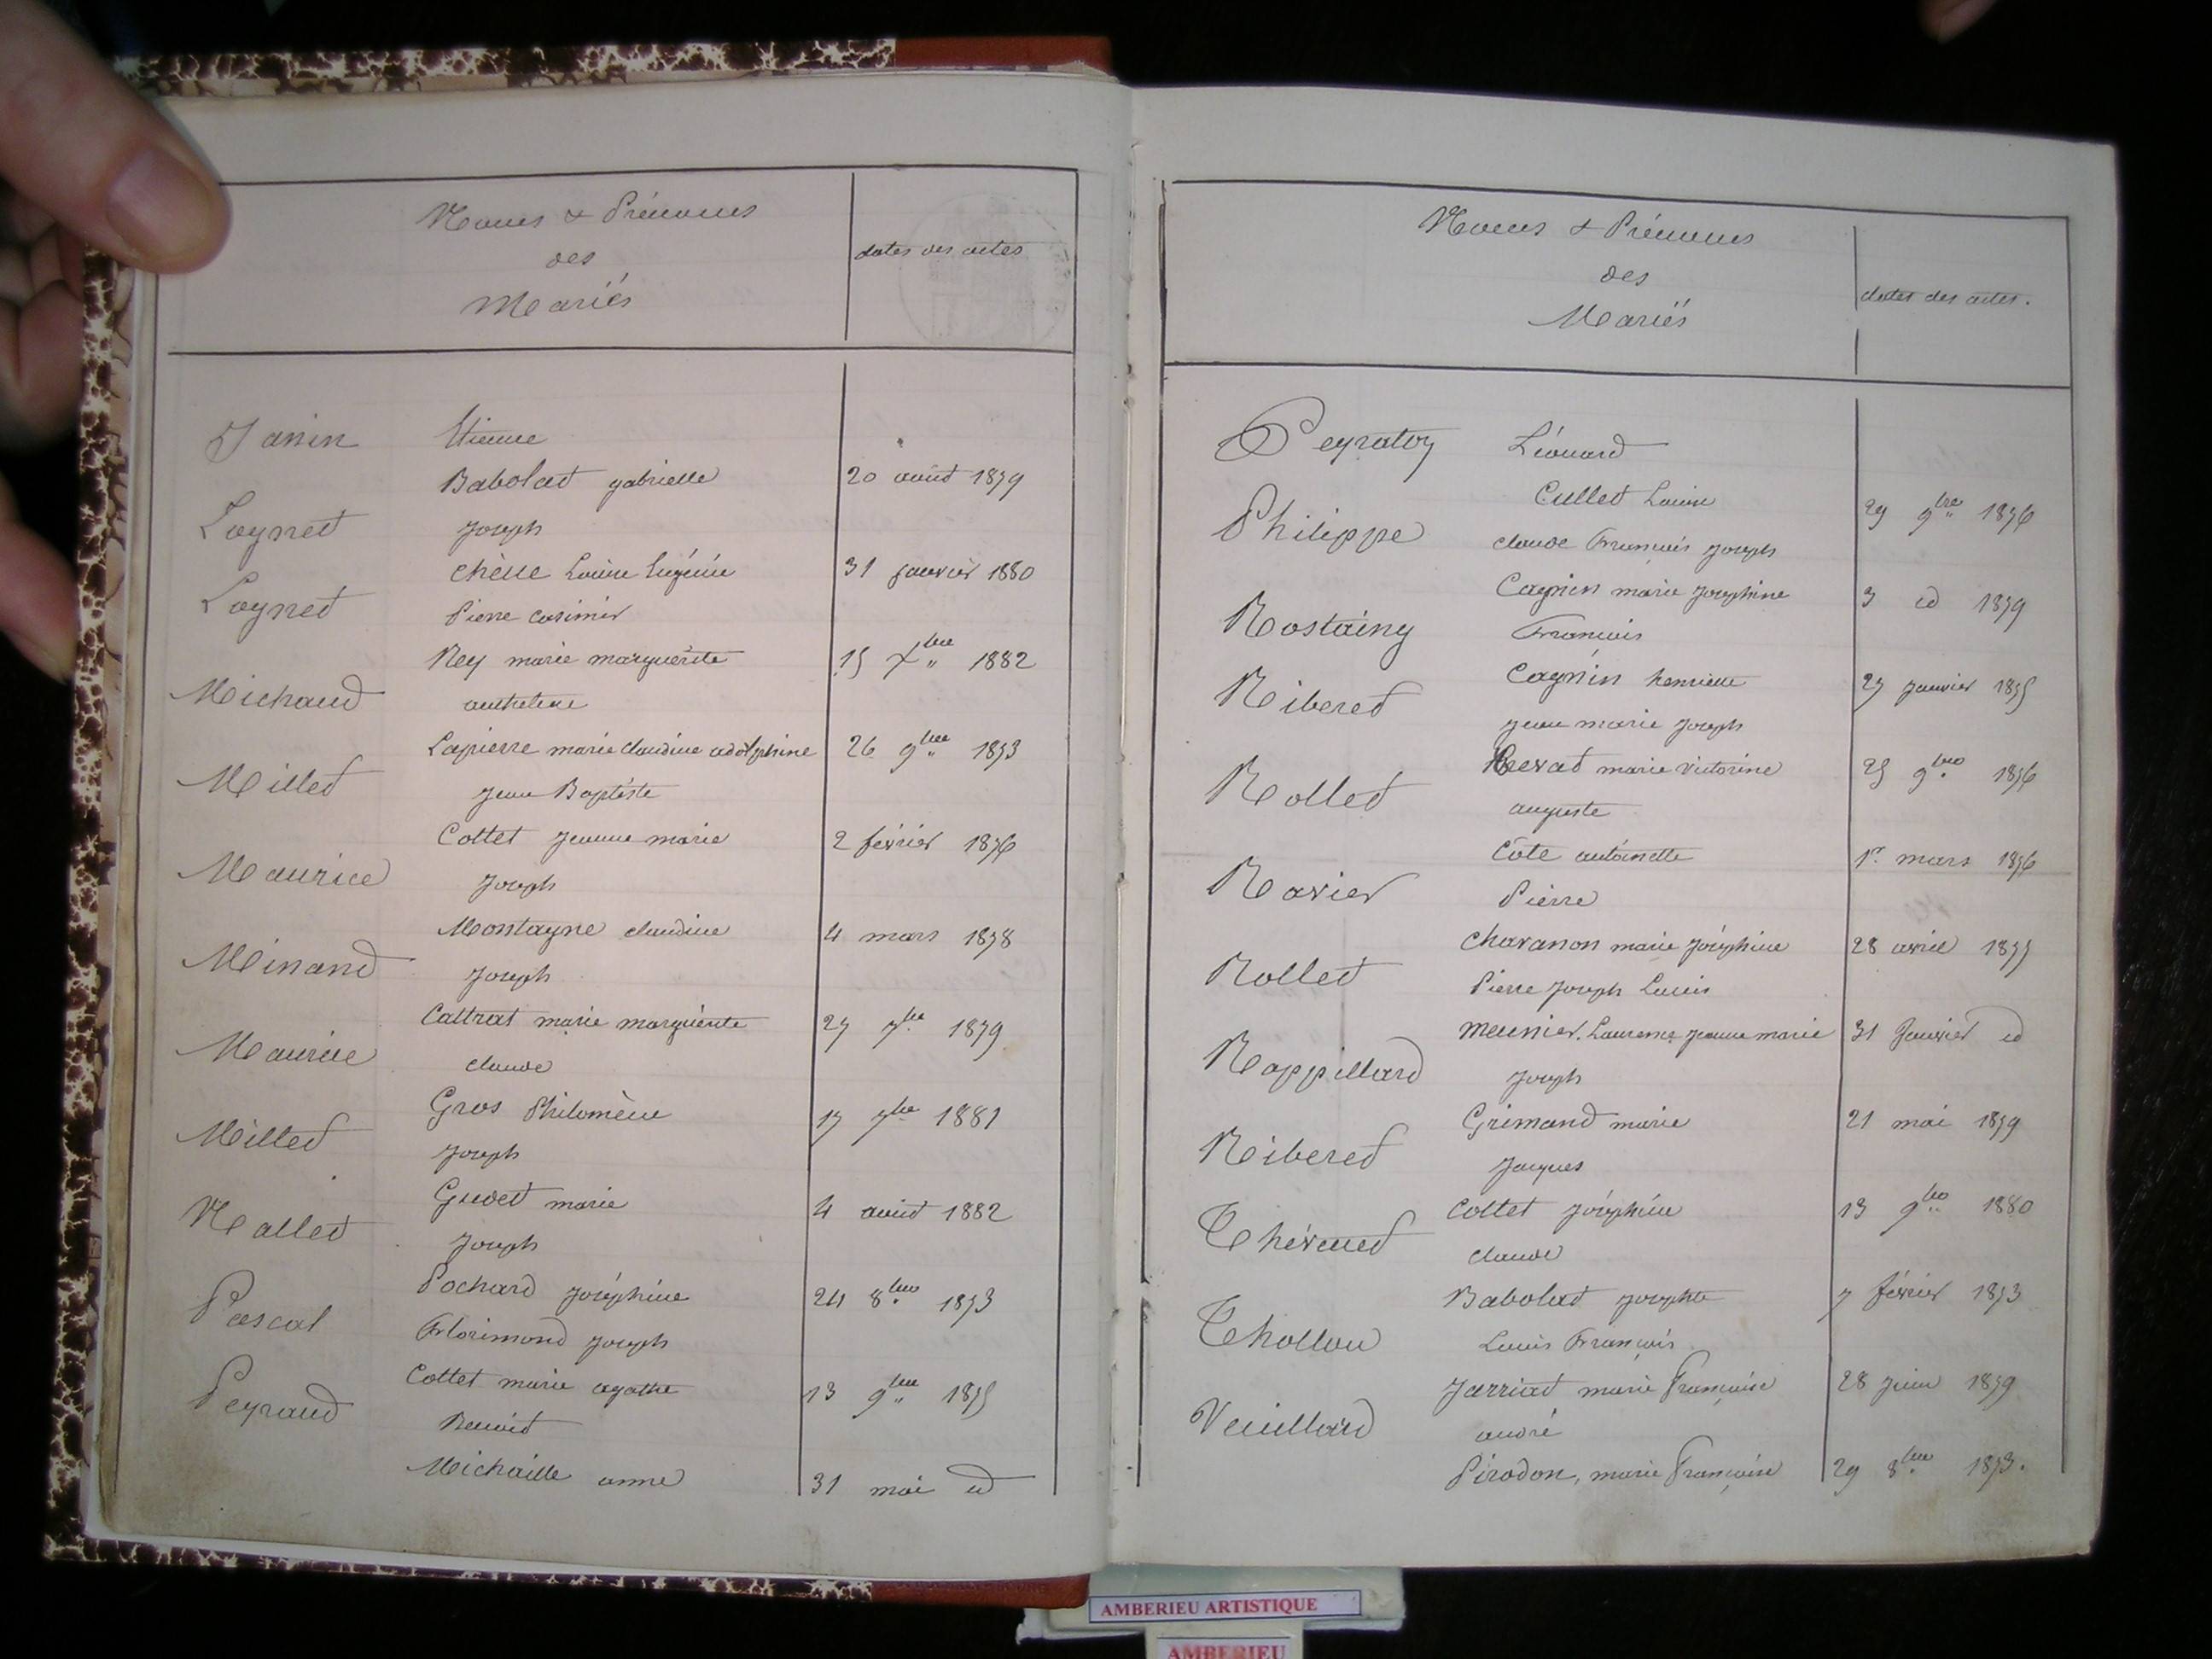 Noms & Prénoms
des
Mariés
dates des actes
Janin Etienne
Babolat gabrielle 20 août 1879
Loynet joseph
chêne Louise Eugénie 31 janvier 1880
Loynet Pierre casimir
Rey marie marguerite 15 Xbre 1882
Michaud anthelme
Lapierre marie claudine adolphine 26 9bre 1873
Millet jean Baptiste
Cottet jeanne marie 2 février 1876
Maurice joseph
Montagne claudine 4 mars 1878
Minand joseph
Cattrat marie marguerite 27 7bre 1879
Maurice claude
Gros Philomène 17 7bre 1881
Millet joseph
Gudet marie 4 août 1882
Nallet joseph
Pochard joséphine 24 8bre 1873
Pascal Florimond joseph
Cottet marie agathe 13 9bre 1875
Peyraud Benoit
Michaille anne 31 mai id
Noms & Prénoms
des
Mariés
dates des actes.
Peyratoy Léonard
Cullet Louise 29 9bre 1876
Philippe claude François joseph
Cagnin marie joséphine 3 id 1879
Rostaing François
Cagnin henriette 27 janvier 1875
Riberet jean marie joseph
marie victorine 25 9bre 1876
Rollet auguste
Côte antoinette 1er mars 1876
Ravier Pierre
Chavanon marie joséphine 28 avril 1875
Rollet Pierre joseph Louis
Meunier. Laurence jeanne marie 31 Janvier id
Rappillard joseph
Grimand marie 21 mai 1879
Riberet jacques
Cottet joséphine 13 9bre 1880
Thévenet claude
Babolat josephte 7 février 1873
Thollon Louis François
Jarriat marie Françoise 28 juin 1879
Veuillard andré
Pirodon, marie Françoise 29 8bre 1873.
AMBERIEU ARTISTIQUE
AMBERIEU